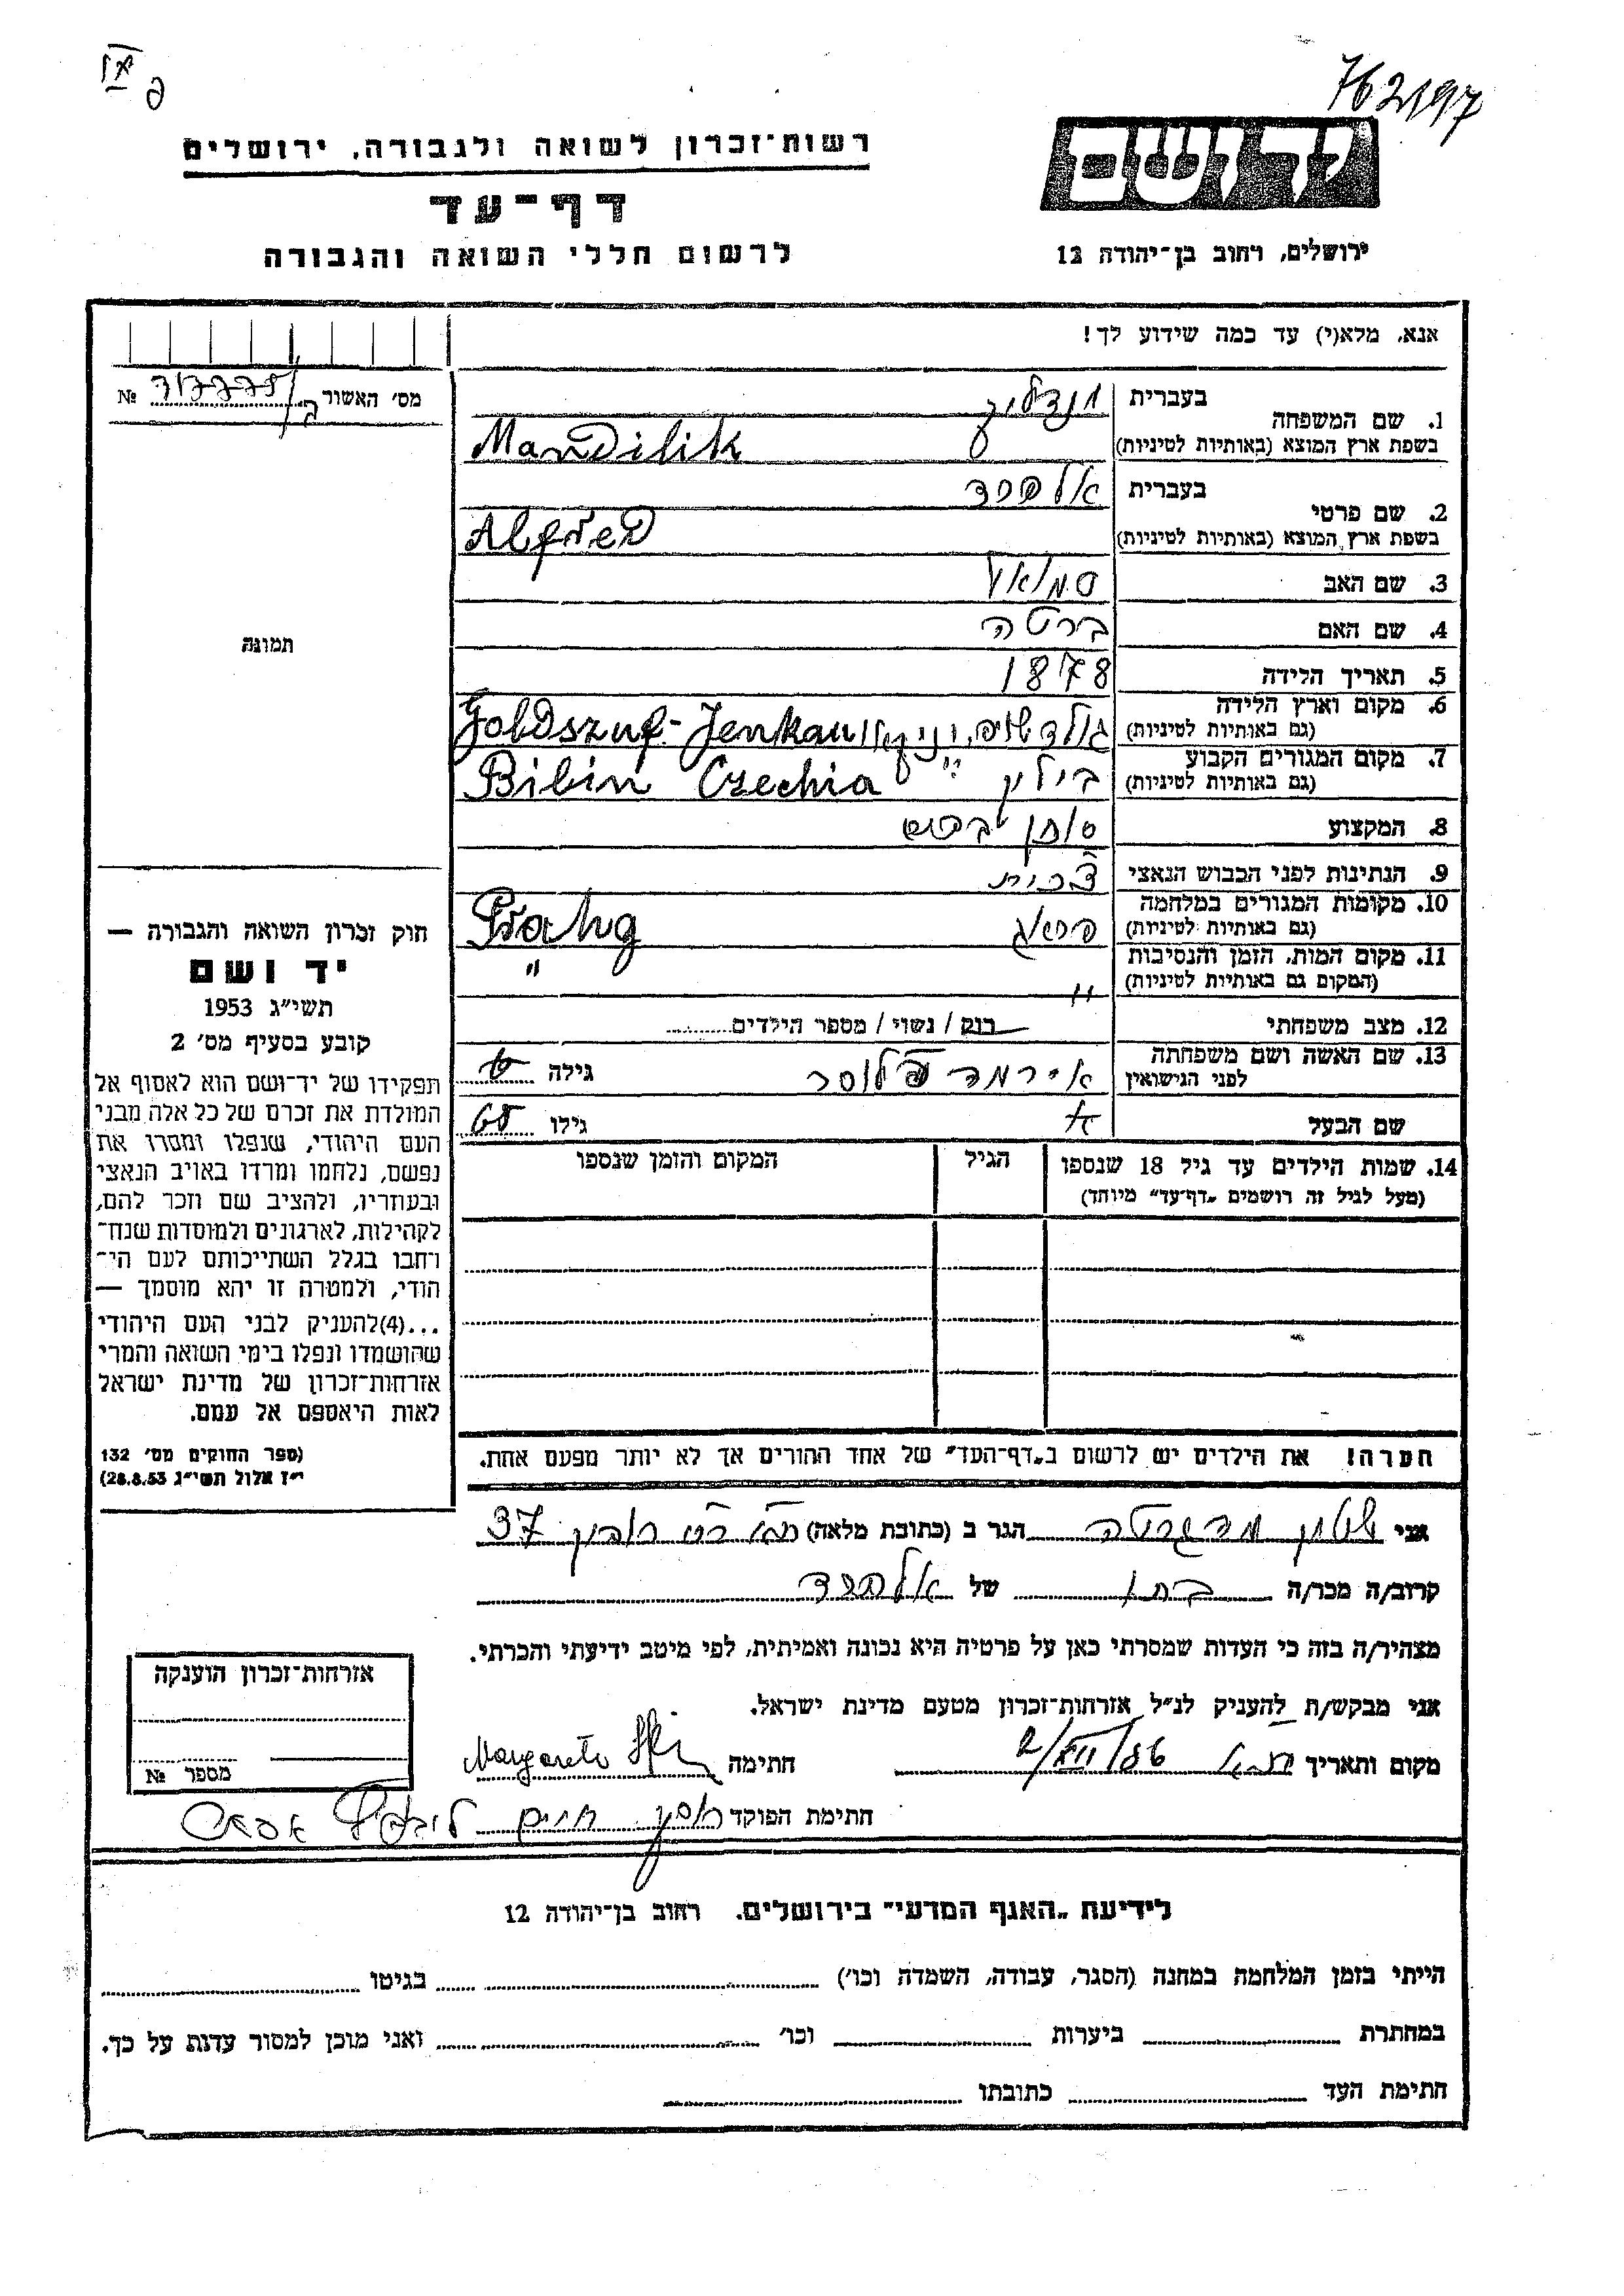 762197
רשות־זכרון לשואה ולגבורה, ירושלים
דף־עד
לרשום חללי השואה והגבורה
ידושם
ירושלים, רחוב בן־יהודה 12
אנא, מלא(י) עד כמה שידוע לך!
מס׳ האשור №
1. שם המשפחה
בעברית
בשפת ארץ המוצא (באותיות לטיניות) Mandilik
2. שם פרטי
בעברית אלפרד
בשפת ארץ המוצא (באותיות לטיניות) Alfred
3. שם האב סמואל
4. שם האם ברטה
5. תאריך הלידה 1878
6. מקום וארץ הלידה
(גם באותיות לטיניות) Jenkau
7. מקום המגורים הקבוע
(גם באותיות לטיניות) בילין Bilin Czechia
8. המקצוע סוחן
9. הנתינות לפני הכבוש הנאצי צ׳כית
10. מקומות המגורים במלחמה
(גם באותיות לטיניות) פראג Prahg
11. מקום המות, הזמן והנסיבות
(המקום גם באותיות לטיניות) " "
12. מצב משפחתי רוק / נשוי / מספר הילדים
13. שם האשה ושם משפחתה
לפני הנישואין אירמה גילה
שם הבעל גילו 68
14. שמות הילדים עד גיל 18 שנספו
(מעל לגיל זה רושמים „דף־עד״ מיוחד)
הגיל
המקום והזמן שנספו
תמונה
חוק זכרון השואה והגבורה —
יד ושם
תשי״ג 1953
קובע בסעיף מס׳ 2
תפקידו של יד־ושם הוא לאסוף אל
המולדת את זכרם של כל אלה מבני
העם היהודי, שנפלו ומסרו את
נפשם, נלחמו ומרדו באויב הנאצי
ובעוזריו, ולהציב שם וזכר להם,
לקהילות, לארגונים ולמוסדות שנח־
רבו בגלל השתייכותם לעם הי־
הודי, ולמטרה זו יהא מוסמך —
...(4)להעניק לבני העם היהודי
שהושמדו ונפלו בימי השואה והמרי
אזרחות־זכרון של מדינת ישראל
לאות היאספם אל עמם.
(ספר החוקים מס׳ 132
י״ז אלול תשי״ג 28.8.53)
הערה! את הילדים יש לרשום ב„דף־העד״ של אחד ההורים אך לא יותר מפעם אחת.
אני מרגרטה הגר ב (כתובת מלאה) 37
קרוב/ה מכר/ה בתו של אלפרד
מצהיר/ה בזה כי העדות שמסרתי כאן על פרטיה היא נכונה ואמיתית, לפי מיטב ידיעתי והכרתי.
אני מבקש/ת להעניק לנ״ל אזרחות־זכרון מטעם מדינת ישראל.
מקום ותאריך חתימה Margarete
חתימת הפוקד
אזרחות־זכרון הוענקה
מספר №
לידיעת „האגף המדעי״ בירושלים, רחוב בן־יהודה 12
הייתי בזמן המלחמה במחנה (הסגר, עבודה, השמדה וכו׳) בגיטו
במחתרת ביערות וכו׳ ואני מוכן למסור עדות על כך.
חתימת העד כתובתו